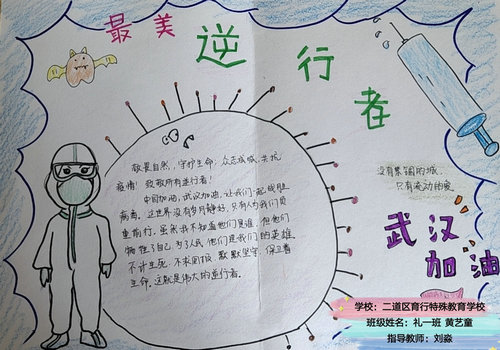 最美
逆行者
敬畏自然,守护生命,众志成城,共抗
疫情!致敬所有逆行者!
中国加油,武汉加油,让我们一起战胜
病毒。这世界没有岁月静好,只有人为我们负
重前行。虽然我不知道他们是谁,但他们
牺牲了自己,为了人民,他们是我们的英雄,
不计生死,不求回报,默默坚守,保卫着
生命,这就是伟大的逆行者。
没有禁锢的城,
只有流动的爱
武汉
加油
学校:二道区育行特殊教育学校
班级姓名:礼一班 黄艺童
指导教师:刘淼